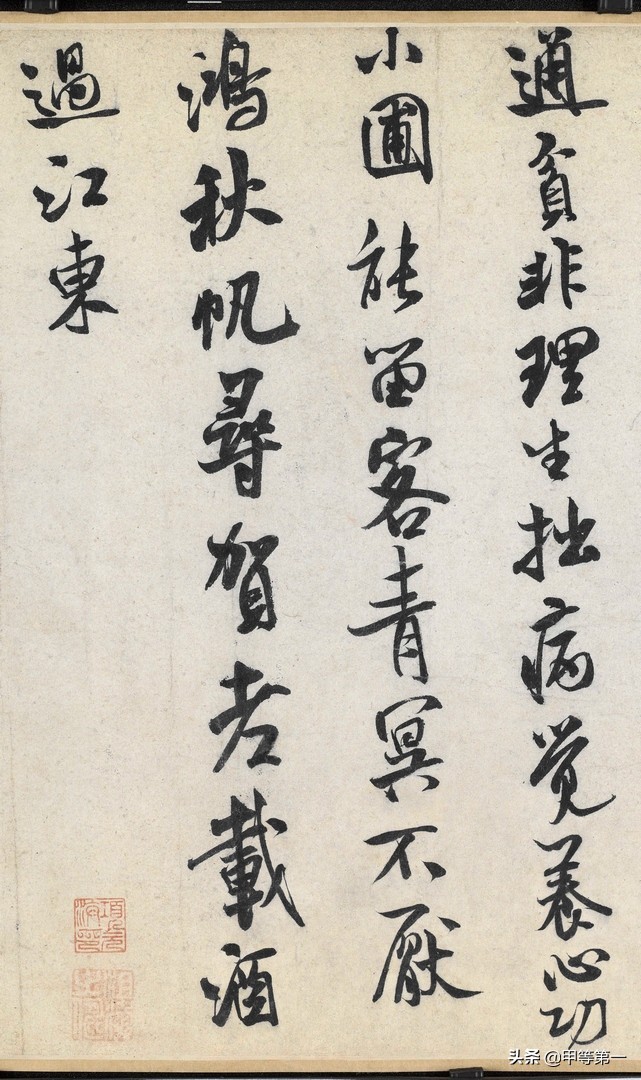 通貧非理生拙病覺養心功
小圃能留客青冥不厭
鴻秋帆尋賀老載酒
過江東
头条 @甲等第一